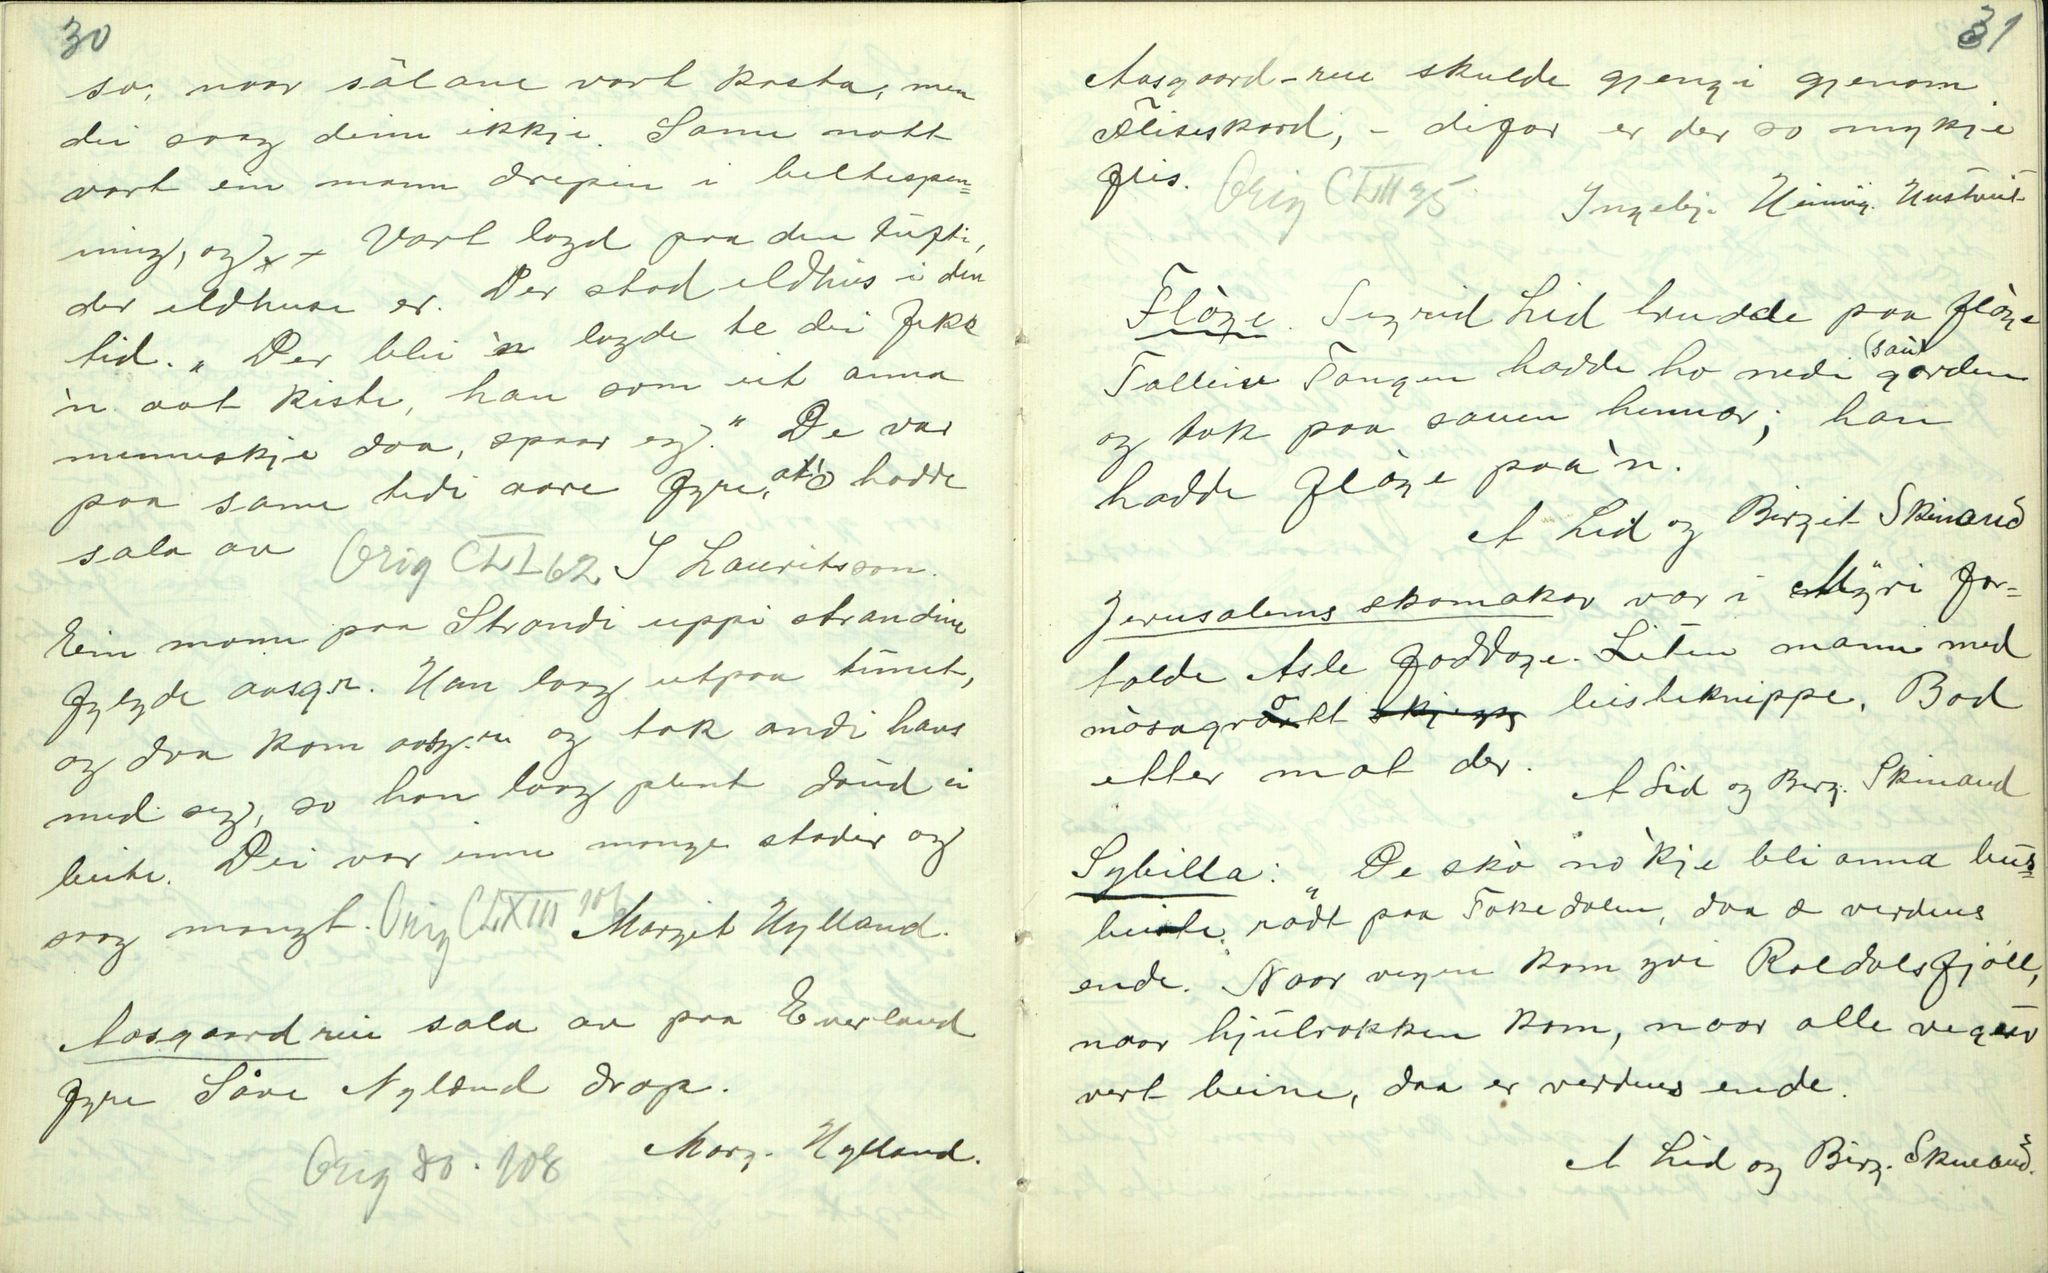 30
so, naar sålane vart kasta, men
dei saag deim ikkje. Same nott
vart ein mann drepin i beltespen=
ning, og ×-× Vart lagd paa den tufti,
der eldhuse er. Der stod eldhus i den
tid. "Der blei 'n lagde te dei fekk
'n aat kiste, han som eit anna
menneskje daa, spaar eg." De var
paa same tidi aare fyre, at'o hadde
sala av Orig CLI 62 S Lauritsson.
Ein mann paa Strondi uppi strandine
fylgde aasg.r. Han laag utpaa tunet,
og daa kom aasg.rei og tok andi hans
med seg, so han laag plent daud ei
beite. Dei var inne mange stader og
saag mangt. Orig CLXIII 106 Margit Hylland.
Aasgaardrei sala av paa Everland
fyre Såve Nyland drap.
Marg. Hylland.
Orig 80. 108
31
Aasgaard-rei skulde gjengi gjenom
Fliseskard, - difor er der so mykje
flis. Orig CLIII 35 Ingebj. Heinig. Haatveit
Flòge. Sigrid Lid trudde paa flòge
Talleiv Tangen hadde ho nedi (sau)garden
og tok paa sauen hennar; han
hadde flòge paa'n.
A Lid og Birgit Skinand
Jerusalems skomakar var i Myri for=
talde Asle Goddage. Liten mann med
mòsagrodt skjegg leisteknippe. Bad
etter mat der. A Lid og Birg. Skinand
Sybilla: "De skò no 'kje bli anna bus=
beite rådt paa Tokedalen, daa æ verdens
ende." Naar vegen kom yvi Raldalsfjöll,
naar hjulrokken kom, naar alle vegir
vert beine, daa er verdens ende.
A Lid og Birg. Skinand.